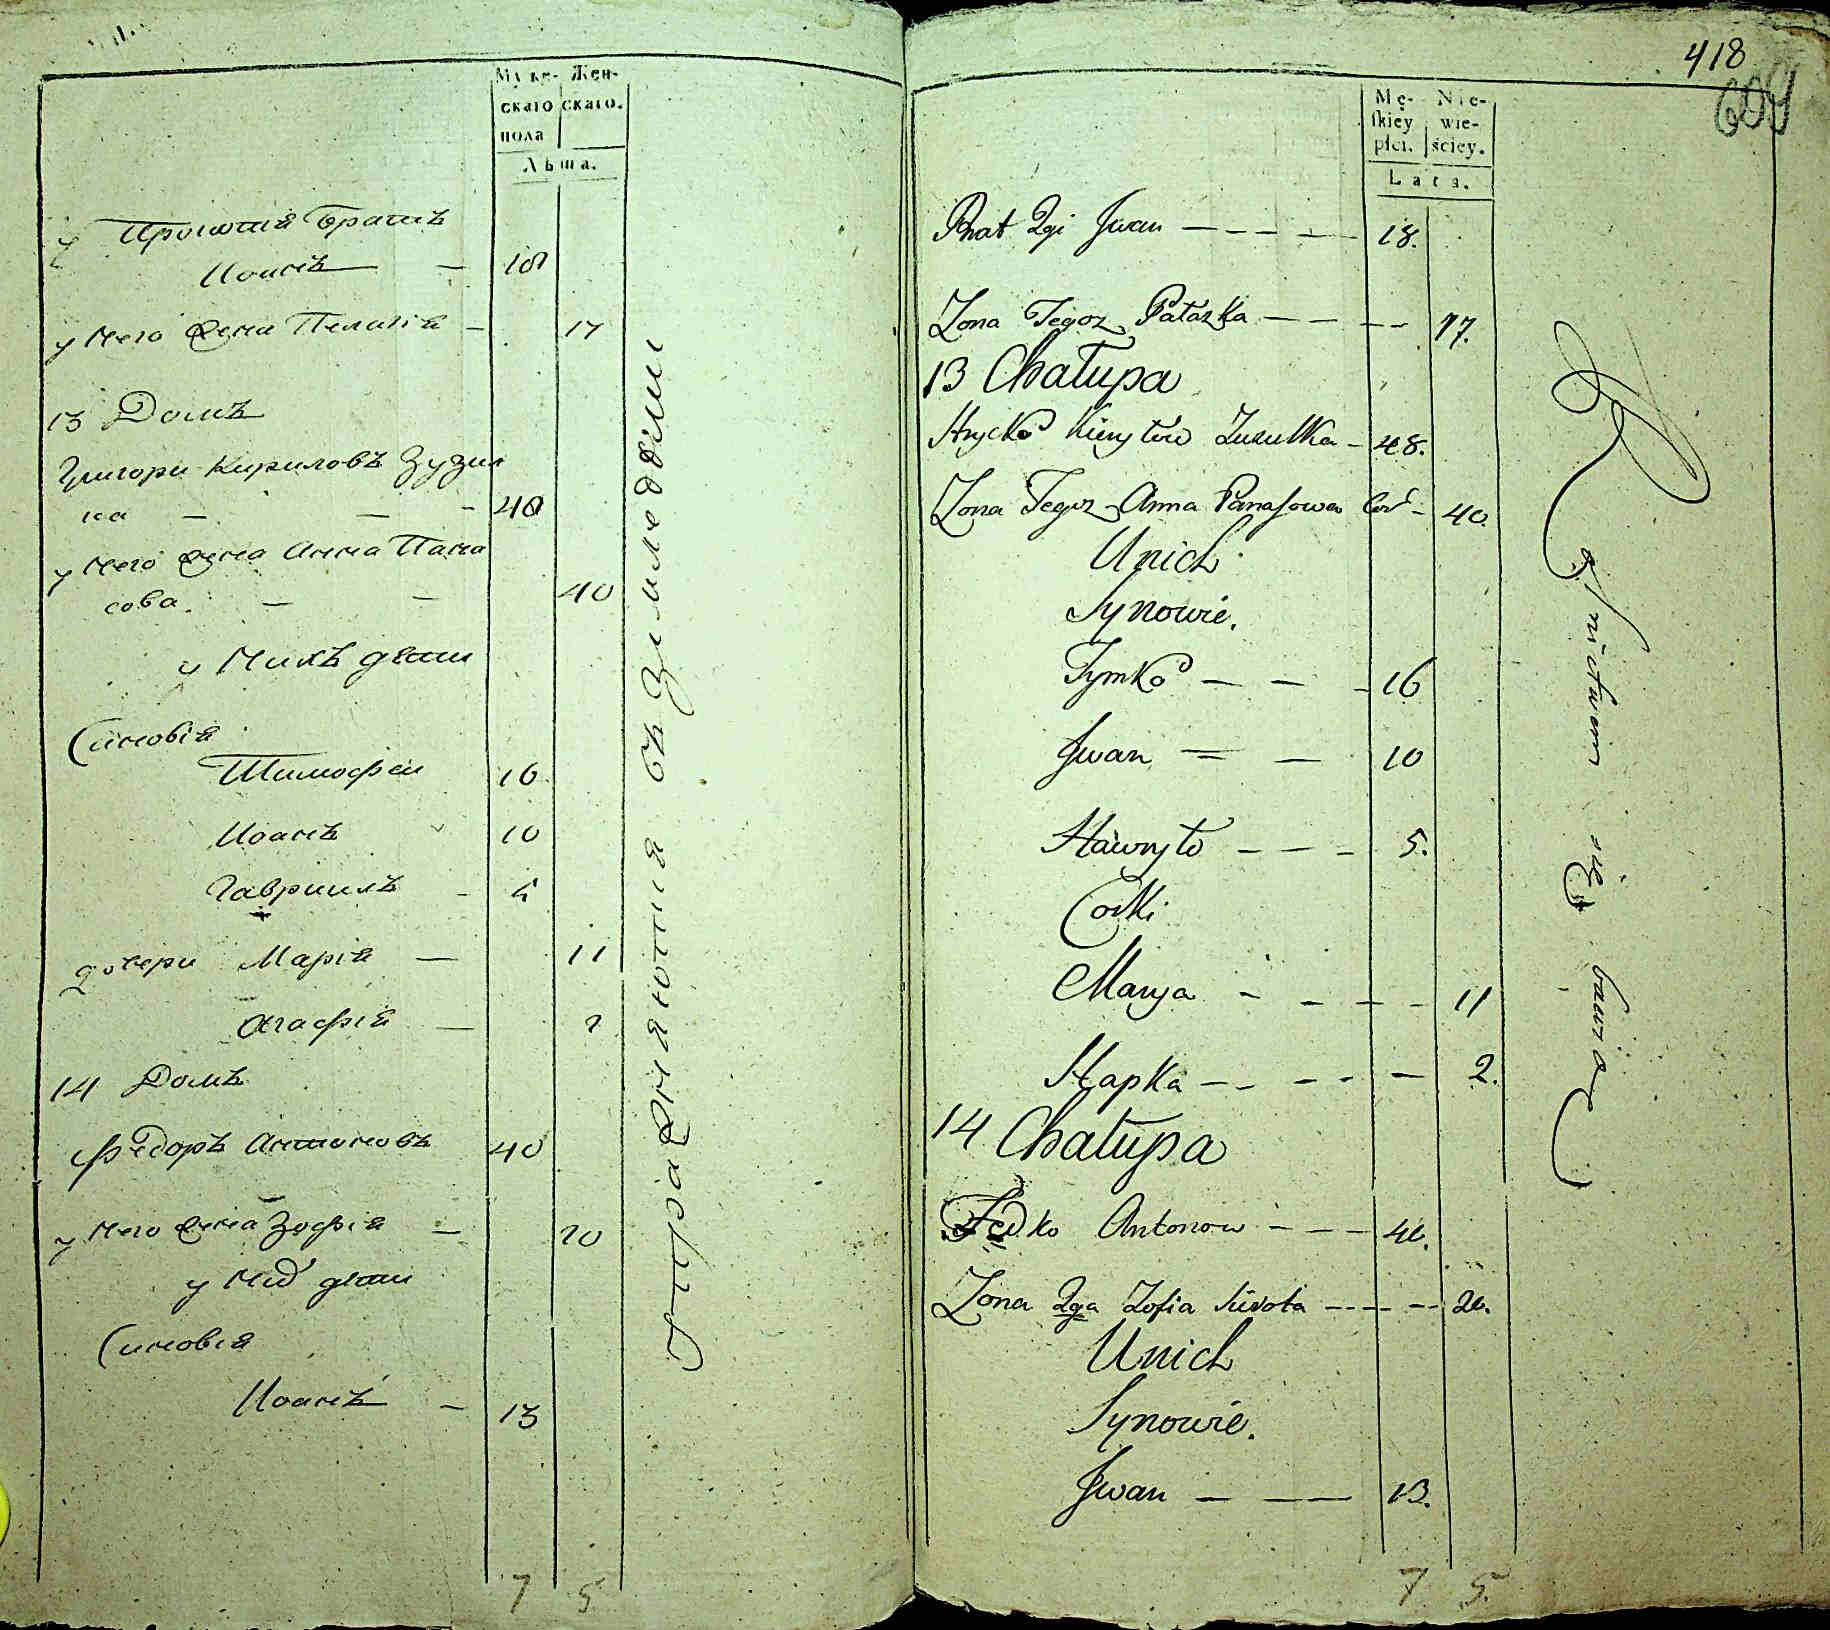 Муже-
скаго
пола
Жен-
скаго.
Лѣта.
у Прокопія братъ
Иоанъ — 18
у него жена Пелагія — 17
13 Домъ
Григори Кириловъ Зузул
ка — — — 48
у него жена Анна Пана
сова — — 40
у нихъ дети
Синовія
Тимофеи 16
Иоанъ 10
Гавриилъ — 5
дочери Марія — 11
Агафія — 2
14 Домъ
Федоръ Антоновъ 40
у него жена Зофія — 20
у ний дети
Синовія
Иоанъ — 13
7 5
упражняются въ земледѣліи
418
609
Mę-
skiey
płci.
Nie-
wie-
ściey.
Lata.
Brat 2gi Jwan — — — — 18.
Zona Tegoz Pałazka — — — — 17.
13 Chałupa
Hrycko Kiryłow Zuzulka — 48.
Zona Tegoz Anna Panasowa Cor — 40.
U nich
Synowie.
Tymko — — — 16
Jwan — — 10
Hawryło — — — 5.
Corki
Marya — — — — 11
Hapka — — — — — 2.
14 Chałupa
Fedko Antonow — — — 40.
Zona 2ga Zofia — — — — 20.
U nich
Synowie.
Jwan — — — 13.
7 5.
Rolnictwem się bawią